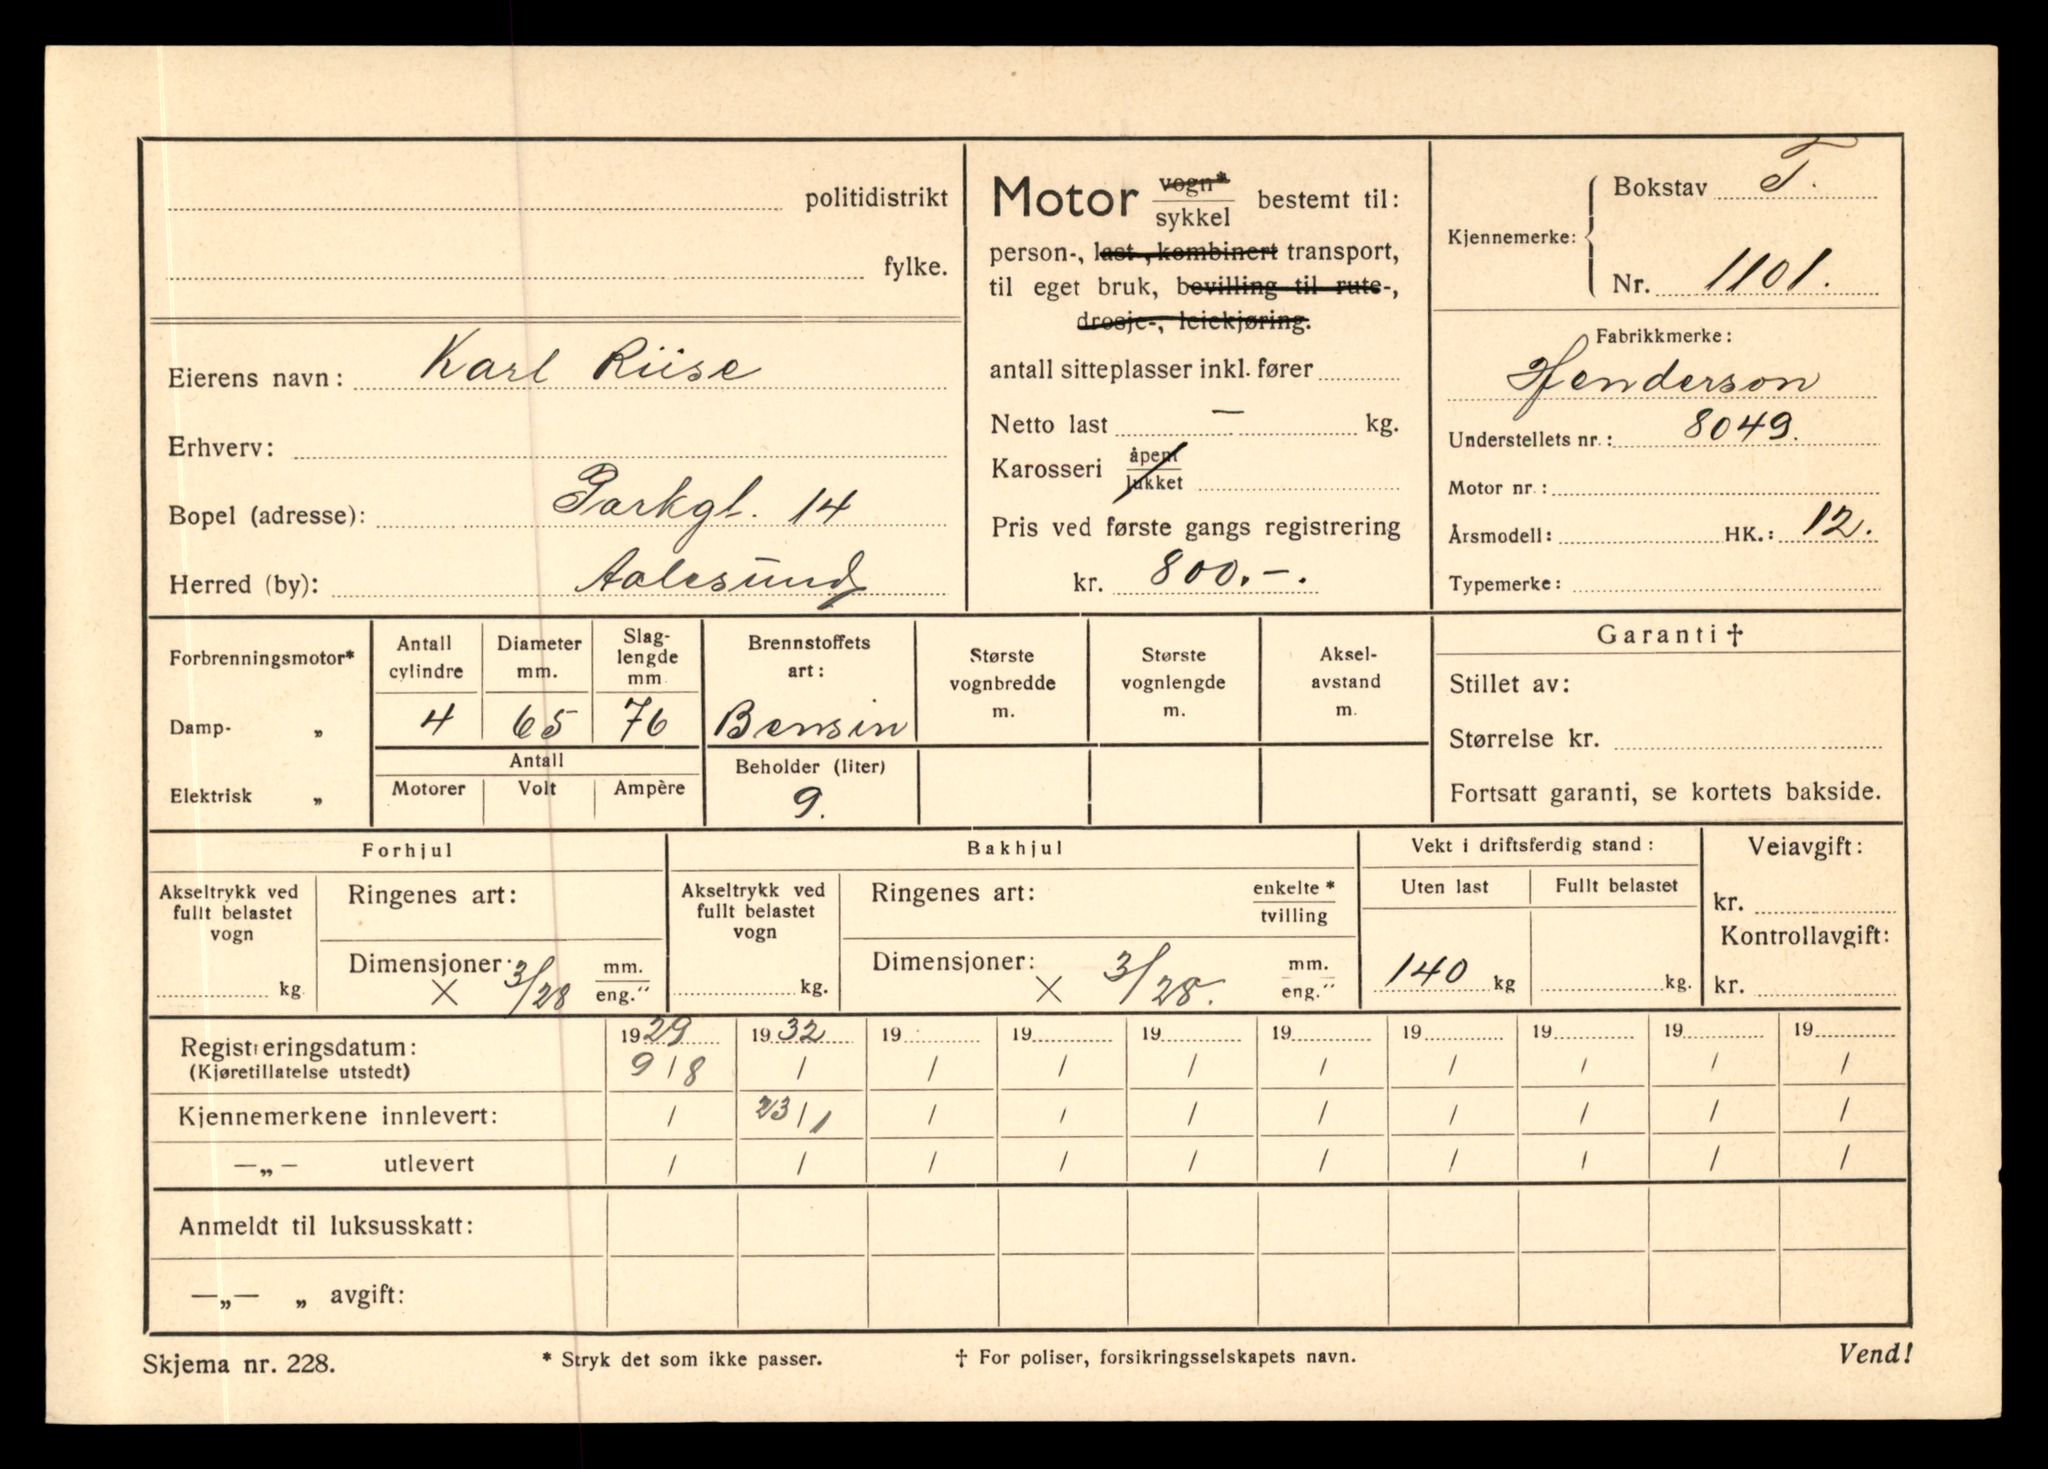 politidistrikt
fylke.
Eierens navn: Karl Riise
Erhverv:
Bopel (adresse): Parkgt. 14
Herred (by): Aalesund
Motor vogn* / sykkel bestemt til:
person-, last-, kombinert transport,
til eget bruk, bevilling til rute-,
drosje-, leiekjøring.
antall sitteplasser inkl. fører
Netto last — kg.
Karosseri åpent / lukket
Pris ved første gangs registrering
kr. 800.-.
Kjennemerke:
Bokstav T.
Nr. 1101.
Fabrikkmerke:
Henderson
Understellets nr.: 8049.
Motor nr.:
Årsmodell: HK.: 12.
Typemerke:
Forbrenningsmotor*
Damp- „
Elektrisk „
Antall cylindre
4
Diameter mm.
65
Slag-lengde mm
76
Antall
Motorer Volt Ampère
Brennstoffets art:
Bensin
Beholder (liter)
9.
Største vognbredde m.
Største vognlengde m.
Aksel-avstand m.
Garanti †
Stillet av:
Størrelse kr.
Fortsatt garanti, se kortets bakside.
Forhjul
Akseltrykk ved fullt belastet vogn
kg.
Ringenes art:
Dimensjoner: × 3/28 mm. / eng."
Bakhjul
Akseltrykk ved fullt belastet vogn
kg.
Ringenes art: enkelte* / tvilling
Dimensjoner: × 3/28. mm. / eng."
Vekt i driftsferdig stand:
Uten last Fullt belastet
140 kg kg.
Veiavgift:
kr.
Kontrollavgift:
kr.
Registreringsdatum: 1929 1932 19 19 19 19 19 19 19 19
(Kjøretillatelse utstedt) 9/8 / / / / / / / / /
Kjennemerkene innlevert: / 23/1 / / / / / / / /
—„— utlevert / / / / / / / / / /
Anmeldt til luksusskatt:
—„— „ avgift:
Skjema nr. 228. * Stryk det som ikke passer. † For poliser, forsikringsselskapets navn. Vend!